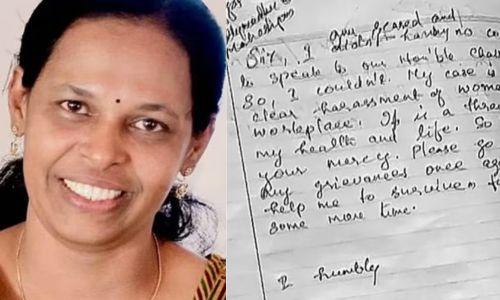 Sir, I am scared and
having no co
to speak to our Hon'ble Chai
So, I couldn't. My case is
clear harassment of wom
workplace. It is a threa
my health and life. So
your mercy. Please go
my grievances once ag
help me to survive
some more time.
I humbly